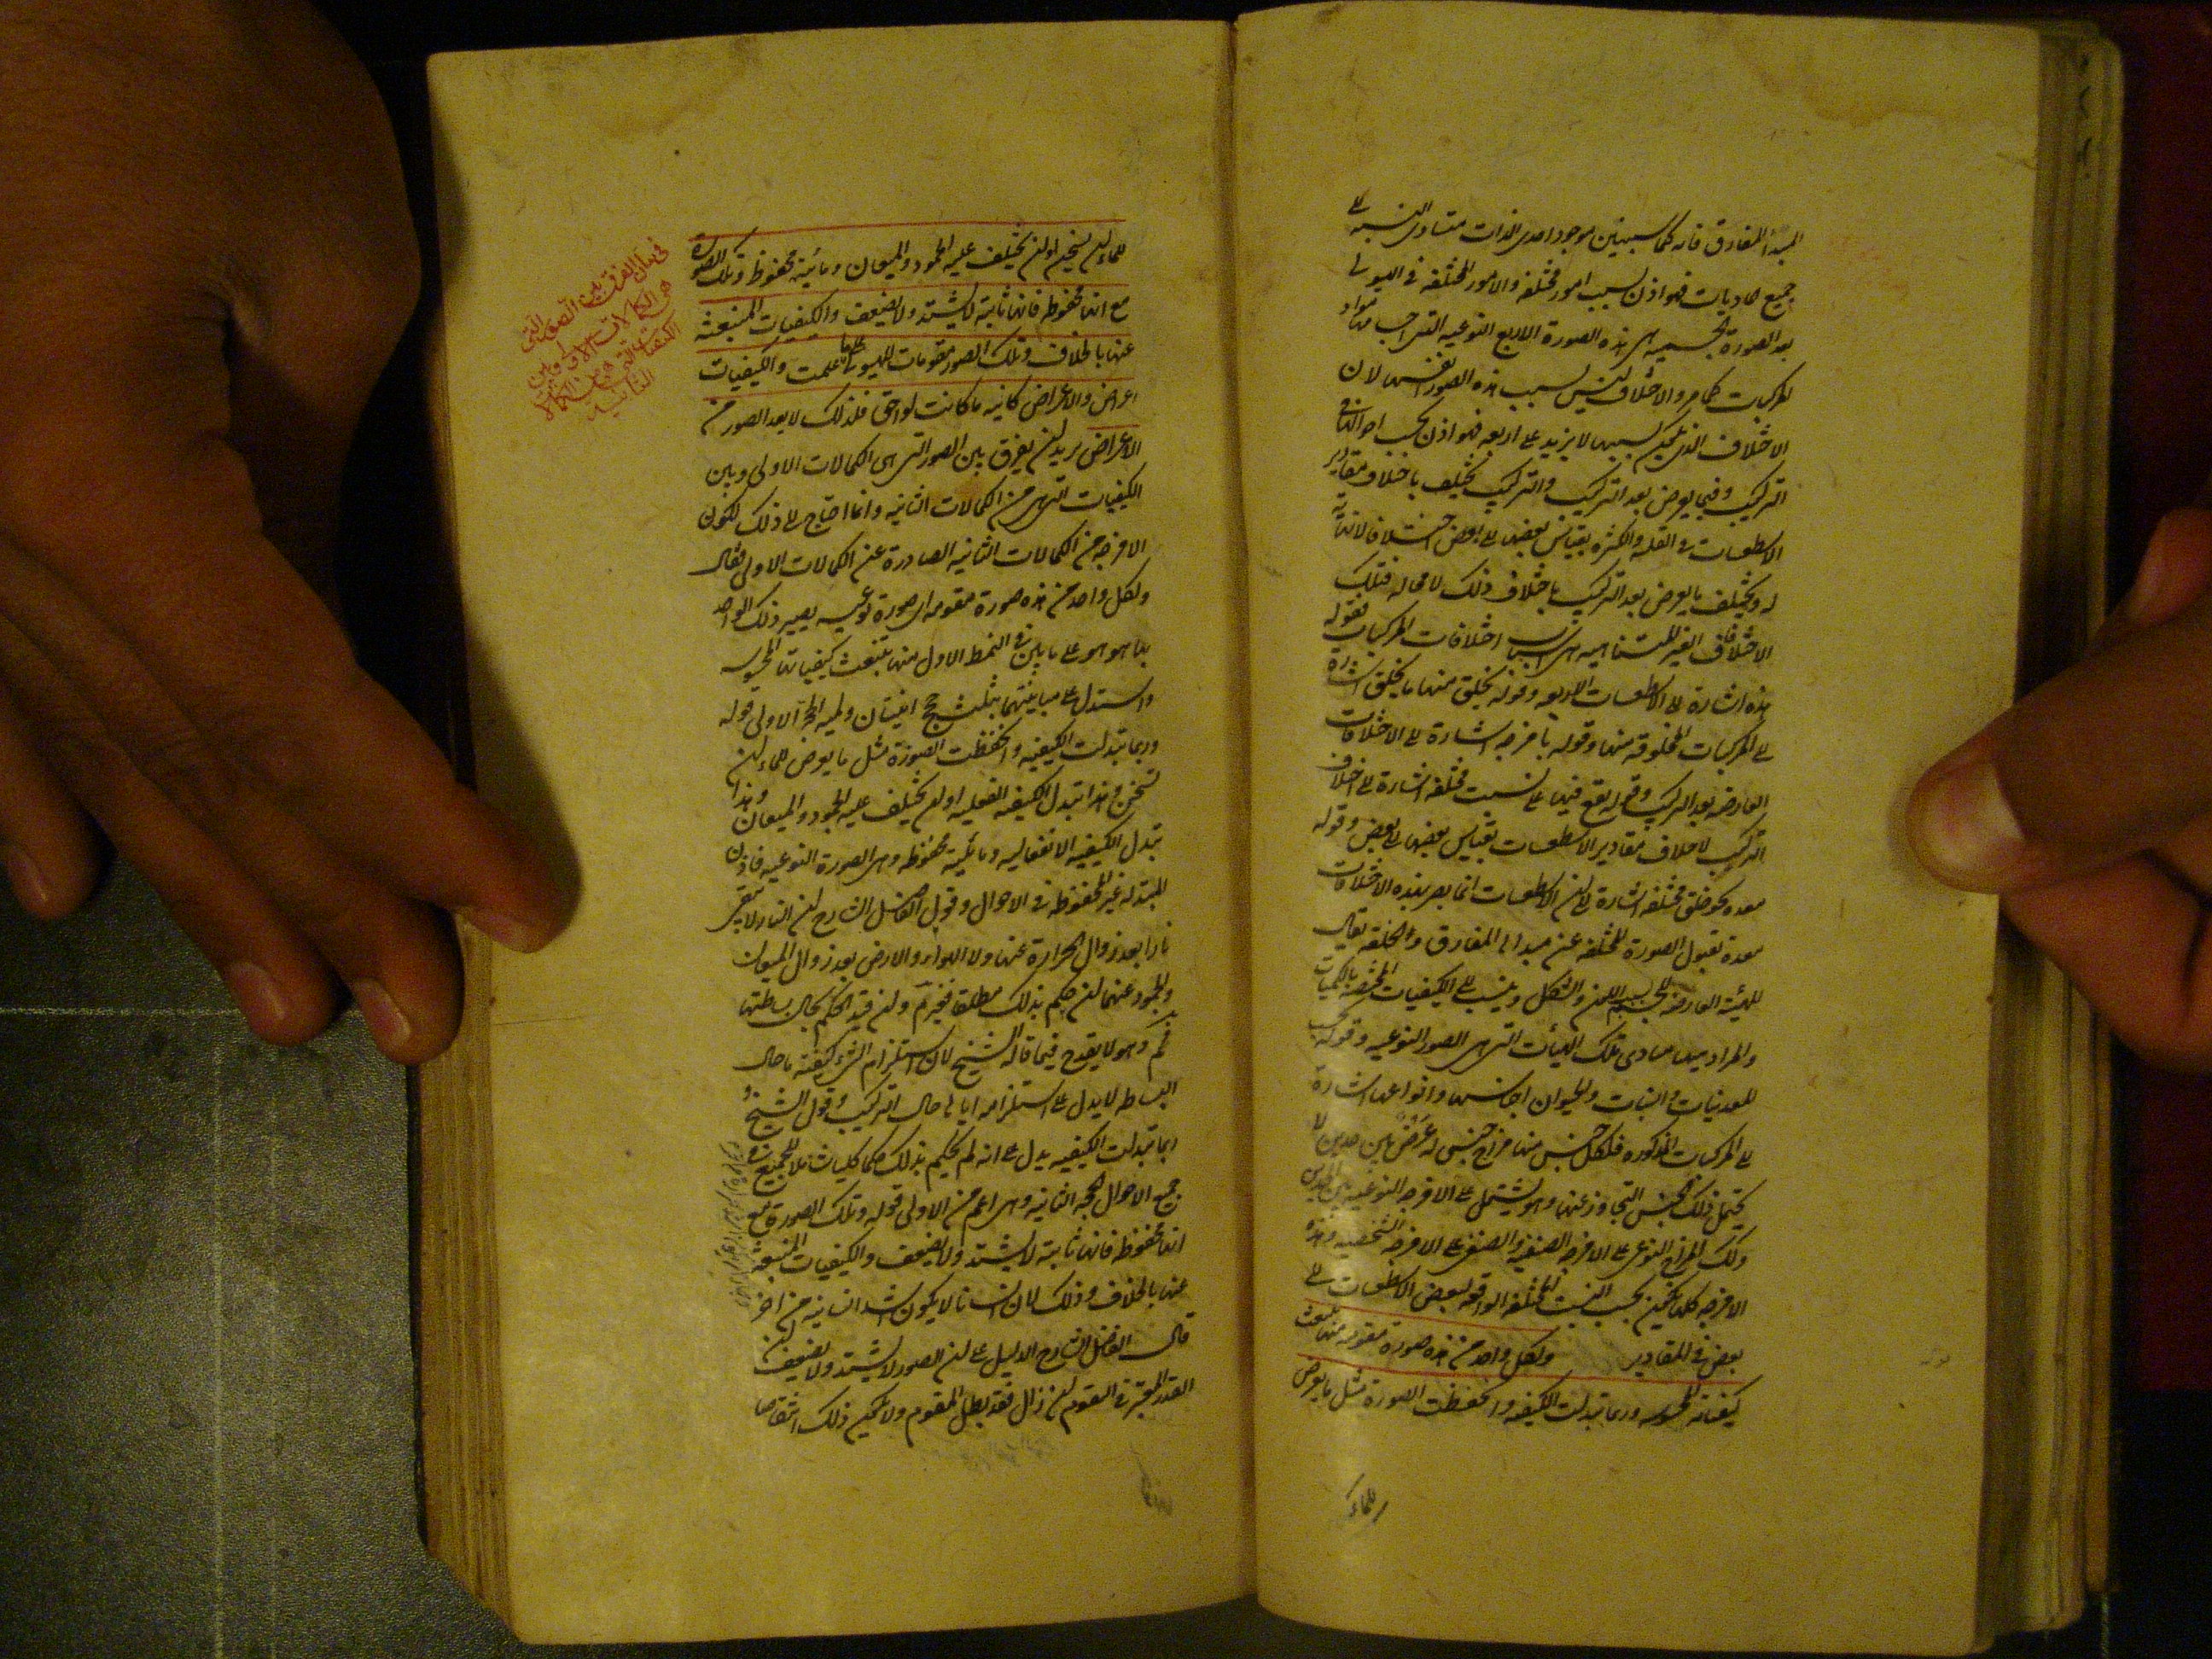 المبدأ المفارق فانه كما سيتبين موجود احدى الذات متساوى النسبة الى
جميع الماديات فهو اذن بسبب امور مختلفة والامور المختلفة فى الهيولى
بعد الصورة الجسمية هى هذه الصورة الاربع النوعيه التى اجسامها مواد
المركبات كما مر والاختلاف ليس بسبب هذه الصور انفسها لان
الاختلاف الذى يكون بسببها لا يزيد على اربعه فهو اذن بحسب احوالها فى
التركيب وفيما يعرض بعد التركيب والتركيب يختلف باختلاف مقادير
الاسطقسات فى القلة والكثرة بقياس بعضها الى بعض اختلافا لا نهاية
له ويختلف ما يعرض بعد التركيب باختلاف ذلك لا محاله فتلك
الاختلافات الغير المتناهيه هى اسباب اختلافات المركبات فقوله
هذه اشارة الى الاسطقسات الاربعه وقوله يخلق منها ما يخلق اشارة
الى المركبات المخلوقة منها وقوله بامزجه اشارة الى الاختلافات
العارضه بعد التركيب وقوله يقع فيها على نسب مختلفه اشارة الى اختلاف
التركيب لاختلاف مقادير الاسطقسات بقياس بعضها الى بعض وقوله
معدة نحو خلق مختلفه اشارة الى ان الاسطقسات انما يصير بهذه الاختلافات
معدة لقبول الصورة المختلفه عن مبدائه المفارق والخلقه يقال
للهيئة العارضه للجسم بسبب اللون والشكل وينسب الى الكيفيات المختصه بالكميات
والمراد منها مبادى تلك الهيأت التى هى الصور النوعيه وقوله بحسب
المعدنيات والنبات والحيوان اجناسها وانواعها اشارة
الى المركبات المذكوره فلكل جنس منها مزاج جنسى له عرض بين حدين لا
يحتمل ذلك الجنس التجاوز عنها وهو يشتمل على الامزجه النوعيه بين الحدين
وكذلك المزاج النوعى على الامزجه الصنفيه والصنفى على الامزجه الشخصيه وهذه
الامزجه كلها يكون بحسب النسب المختلفه الواقعه لبعض الاسطقسات الى
بعض فى المقادير ولكل واحد من هذه صورة مقومه منها تنبعث
كيفياته المحسوسه وربما تبدلت الكيفيه وانحفظت الصورة مثل ما يعرض
للماء
للماء ان يسخن او ان يختلف عليه الجمود والميعان ومائيته محفوظ وتلك الصورة
مع انها محفوظه فانها ثابتة لا يشتد ولا يضعف والكيفيات المنبعثة
عنها بالخلاف وتلك الصور مقومات للهيولى على ما علمت والكيفيات
اعراض والاعراض كانيه ما كانت لواحق فلذلك لا يعد الصور من
الاعراض يريد ان يفرق بين الصور التى هى الكمالات الاولى وبين
الكيفيات التى هى من الكمالات الثانيه وانما احتاج الى ذلك لكون
الامزجه من الكمالات الثانيه الصادرة عن الكمالات الاولى فقال
ولكل واحد من هذه صورة مقومه اى صورة نوعيه يصير ذلك الواحد
بها هو هو على ما بين فى النمط الاول منها تنبعث كيفياتها المحسوسه
واستدل على مباينتهما بثلث حجج انيتان ولميه الحجه الاولى قوله
وربما تبدلت الكيفيه وانحفظت الصورة مثل ما يعرض للماء ان
تسخن وهذا تبدل الكيفيه الفعليه او ان يختلف عليه الجمود والميعان وهذا
تبدل الكيفيه الانفعاليه ومائيته محفوظه وهى الصورة النوعيه فاذن
المتبدلة غير المحفوظه فى الاحوال وقول الفاضل الشارح ان النار لا تبقى
نارا بعد زوال الحرارة عنها ولا الهواء والارض بعد زوال الميعان
والجمود عنهما ان حكم بذلك مطلقا فغير مسلم وان قيد الحكم بحال بساطتها
فمسلم وهو لا يقدح فيما قاله الشيخ لان استلزام الشئ كيفيته ما حال
البساطه لا يدل على استلزامه اياها فى حال التركيب وقول الشيخ
ربما تبدلت الكيفيه يدل على انه لم يحكم بذلك حكما كليا شاملا للجميع فى
جميع الاحوال الحجه الثانيه وهى اعم من الاولى قوله وتلك الصورة مع
انها محفوظه فانها ثابتة لا يشتد ولا يضعف والكيفيات المنبعثه
عنها بالخلاف وذلك لان انسانا لا يكون اشد انسانيه من اخر
قال الفاضل الشارح الدليل على ان الصور لا يشتد ولا يضعف ان
القدر المعتبر فى التقوم ان زال فقد بطل المتقوم ولا يكون ذلك انتقاصا
فى بيان الفرق بين الصور التى
هى الكمالات الاولى وبين
الكيفيات التى هى من الكمالات
الثانيه